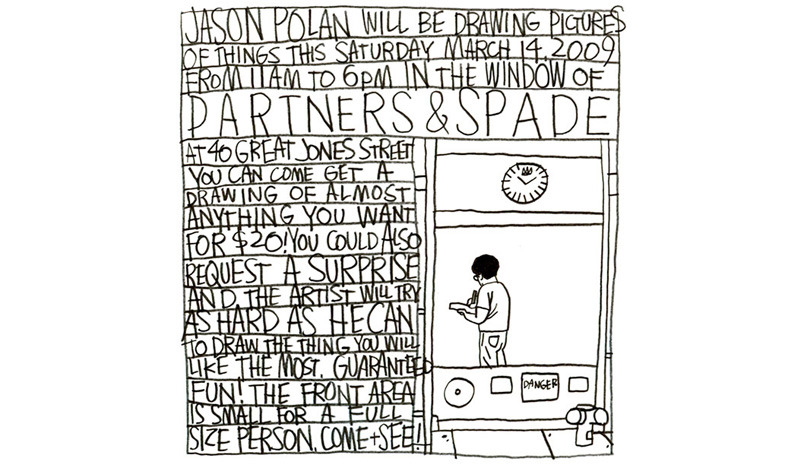 JASON POLAN WILL BE DRAWING PICTURES
OF THINGS THIS SATURDAY MARCH 14, 2009
FROM 11AM TO 6PM IN THE WINDOW OF
PARTNERS & SPADE
AT 40 GREAT JONES STREET
YOU CAN COME GET A
DRAWING OF ALMOST
ANYTHING YOU WANT
FOR $20! YOU COULD ALSO
REQUEST A SURPRISE
AND THE ARTIST WILL TRY
AS HARD AS HE CAN
TO DRAW THE THING YOU WILL
LIKE THE MOST. GUARANTEED
FUN! THE FRONT AREA
IS SMALL FOR A FULL
SIZE PERSON. COME + SEE!
DANGER